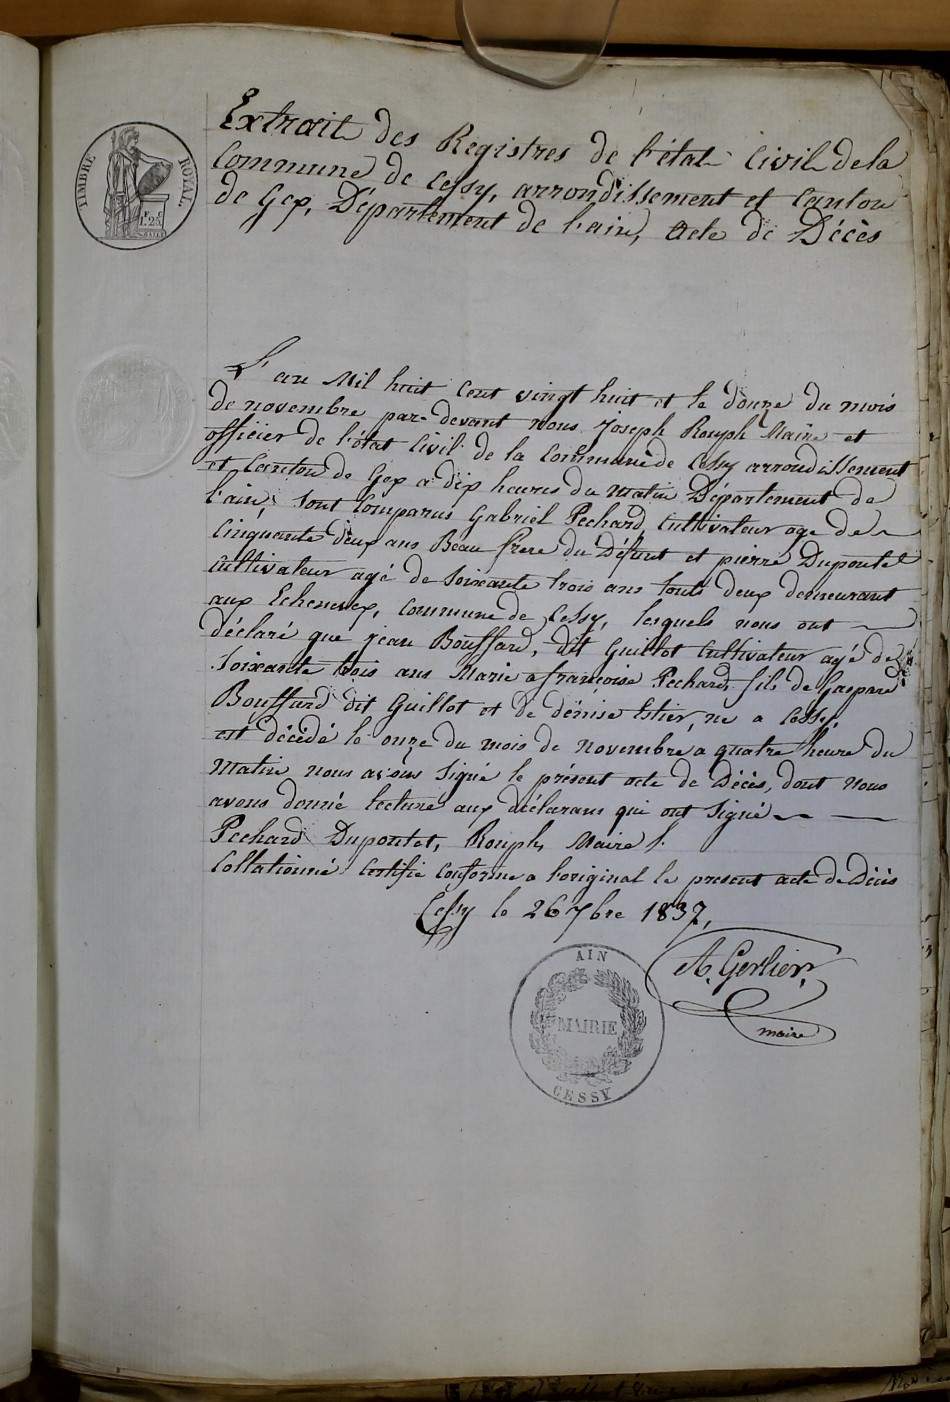 Extrait des Registres de l'état Civil de la
Commune de Cessy, arrondissement et Canton
de Gex, Département de l'ain, Acte de Décès
TIMBRE ROYAL
1.25
L'an Mil huit Cent vingt huit et le douze du mois
de novembre par-devant nous Joseph Rouph Maire et
officier de l'état Civil de la Commune de Cessy arrondissement
et Canton de Gex a dix heures du matin Département de
l'ain, sont Comparus Gabriel Pechard Cultivateur age de
Cinquante deux ans Beau frere du Défunt et pierre Dupontet
Cultivateur agé de soixante trois ans touts deux demeurant
aux Echenevex, Commune de Cessy, lesquels nous ont
déclaré que jean Bouffard, dit Guillot Cultivateur agé de
Soixante trois ans Marie a françoise Pechard fils de Gaspard
Bouffard dit Guillot et de dénise Estier, ne a Cessy,
est décédé le onze du mois de novembre a quatre heure du
Matin nous avons Signé le présent acte de Décès, dont nous
avons donné lecture aux déclarans qui ont Signé
Pechard Dupontet, Rouph, Maire
Collationné Certifié Conforme a l'original le present acte de Décès
Cessy le 26 7bre 1837,
A. Gerlier,
maire
AIN
MAIRIE
CESSY